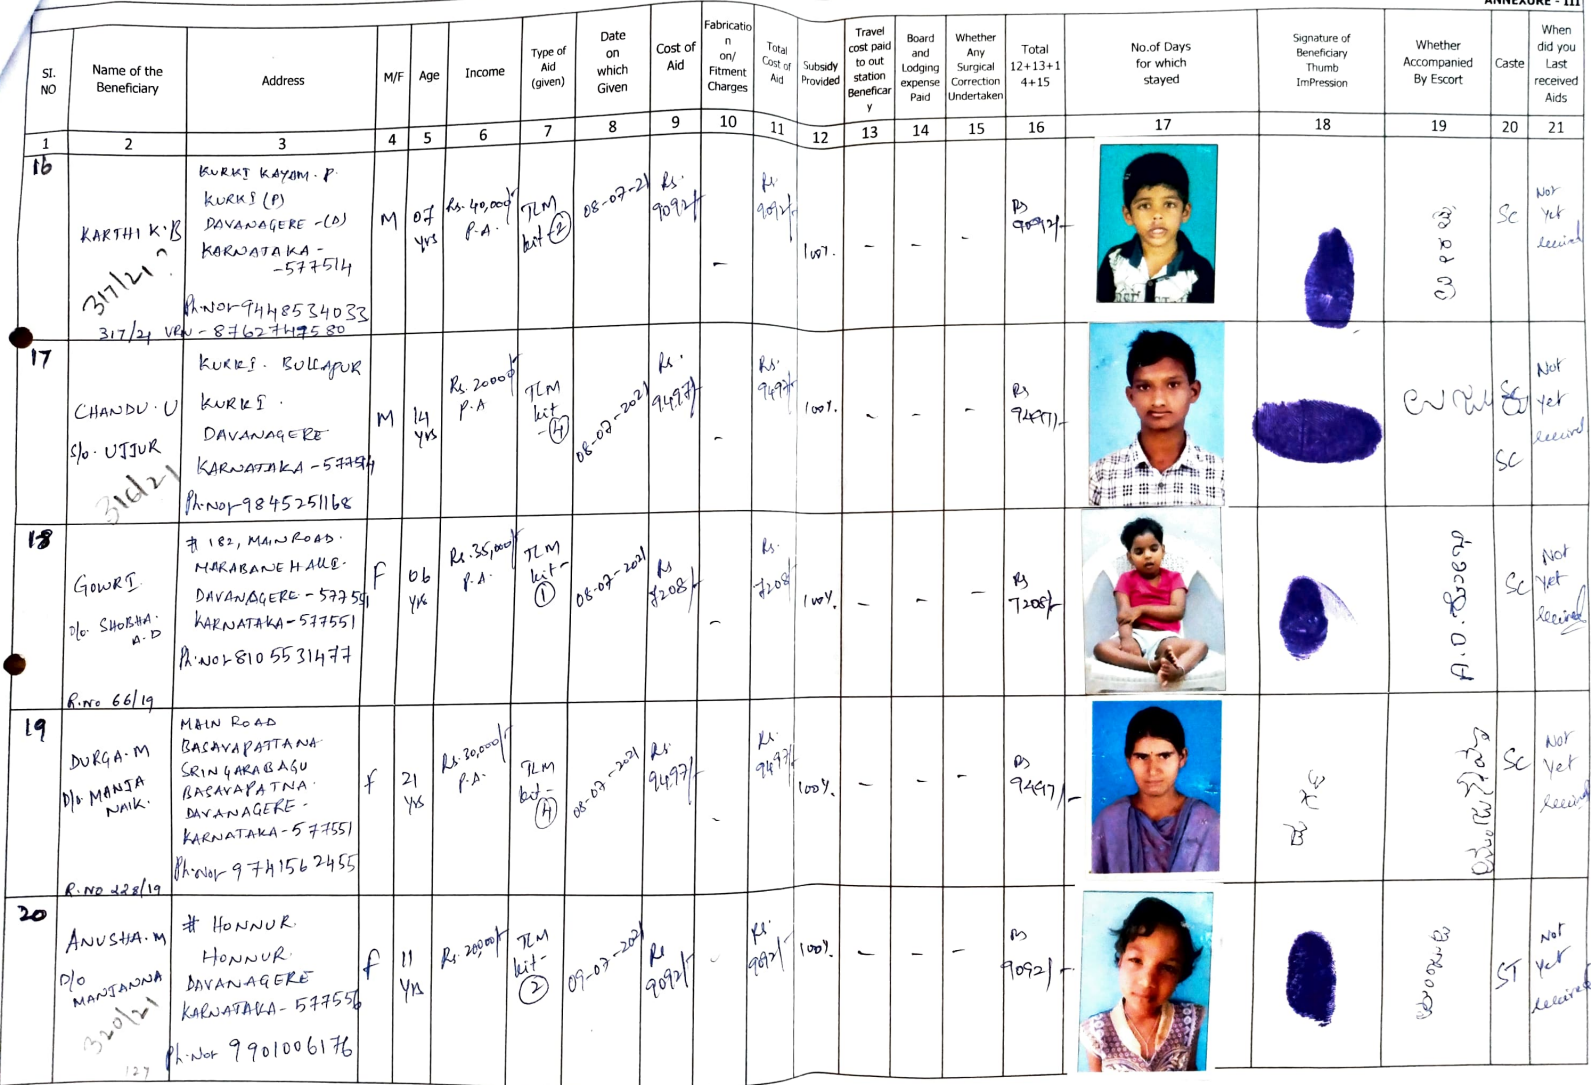 ANNEXURE - III
SI. NO
Name of the Beneficiary
Address
M/F
Age
Income
Type of Aid (given)
Date on which Given
Cost of Aid
Fabricatio n on/ Fitment Charges
Total Cost of Aid
Subsidy Provided
Travel cost paid to out station Beneficar y
Board and Lodging expense Paid
Whether Any Surgical Correction Undertaken
Total 12+13+1 4+15
No.of Days for which stayed
Signature of Beneficiary Thumb ImPression
Whether Accompanied By Escort
Caste
When did you Last received Aids
1 2 3 4 5 6 7 8 9 10 11 12 13 14 15 16 17 18 19 20 21
16
KARTHI K.B
317/21 ?
317/21
KURKI KAYAM. P.
KURKI (P)
DAVANAGERE -(D)
KARNATAKA -
-577514
Ph.No:- 9448534033
VRN - 8762747580
M
07 yrs
Rs. 40,000/- P.A.
TLM kit-2
08-07-21
Rs. 9092/-
-
Rs. 9092/-
100%.
-
-
-
Rs 9092/-
SC
Not Yet received
17
CHANDU. U
S/o. UJJUR
316/21
KURKI. BULLAPUR
KURKI.
DAVANAGERE
KARNATAKA - 577514
Ph.No:- 9845251168
M
14 yrs
Rs. 20000/- P.A
TLM kit -4
08-07-2021
Rs. 9497/-
-
Rs. 9497/-
100%.
-
-
-
Rs 9497/-
SC
Not Yet received
18
GOWRI.
D/o. SHOBHA. A.D
R.No 66/19
# 182, MAIN ROAD.
MARABANEHALLI.
DAVANAGERE - 577551
KARNATAKA - 577551
Ph.No:- 8105531477
F
06 yrs
Rs. 35,000/- P.A.
TLM kit- 1
08-07-2021
Rs 7208/-
-
Rs. 7208/-
100%.
-
-
-
Rs 7208/-
SC
Not Yet received
19
DURGA. M
D/o. MANJA NAIK.
R.NO 228/19
MAIN ROAD
BASAVAPATTANA
SRINGARABAGU
BASAVAPATNA.
DAVANAGERE -
KARNATAKA - 577551
Ph.No:- 9741562455
F
21 yrs
Rs. 30,000/- P.A.
TLM kit- 4
08-07-2021
Rs. 9497/-
-
Rs. 9497/-
100%.
-
-
-
Rs 9497/-
SC
Not Yet received
20
ANUSHA. M
D/o MANJANNA
320/21
127
# HONNUR.
HONNUR.
DAVANAGERE
KARNATAKA - 577556
Ph.No:- 9901006176
F
11 yrs
Rs. 20,000/-
TLM kit- 2
09-07-2021
Rs 9092/-
Rs. 9092/-
100%.
-
-
-
Rs 9092/-
ST
Not Yet received